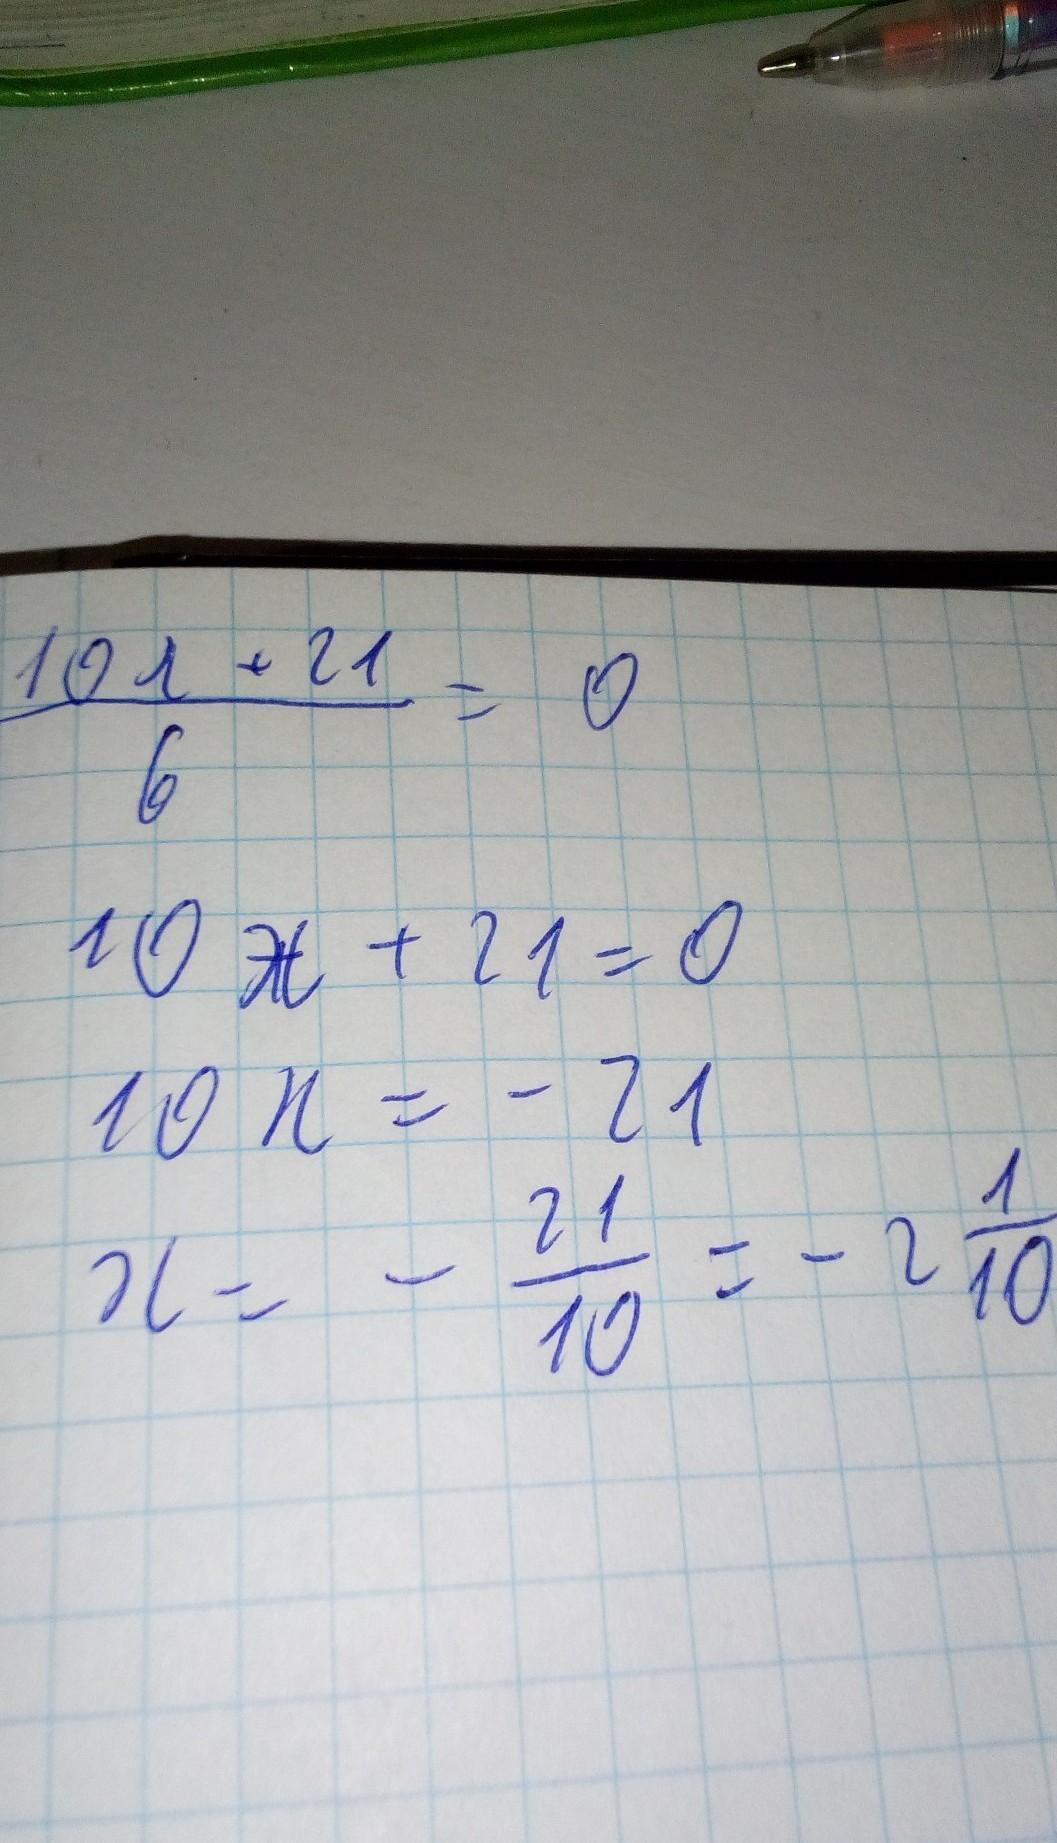 (10x + 21)/6 = 0
10x + 21 = 0
10x = - 21
x = - 21/10 = - 2 1/10